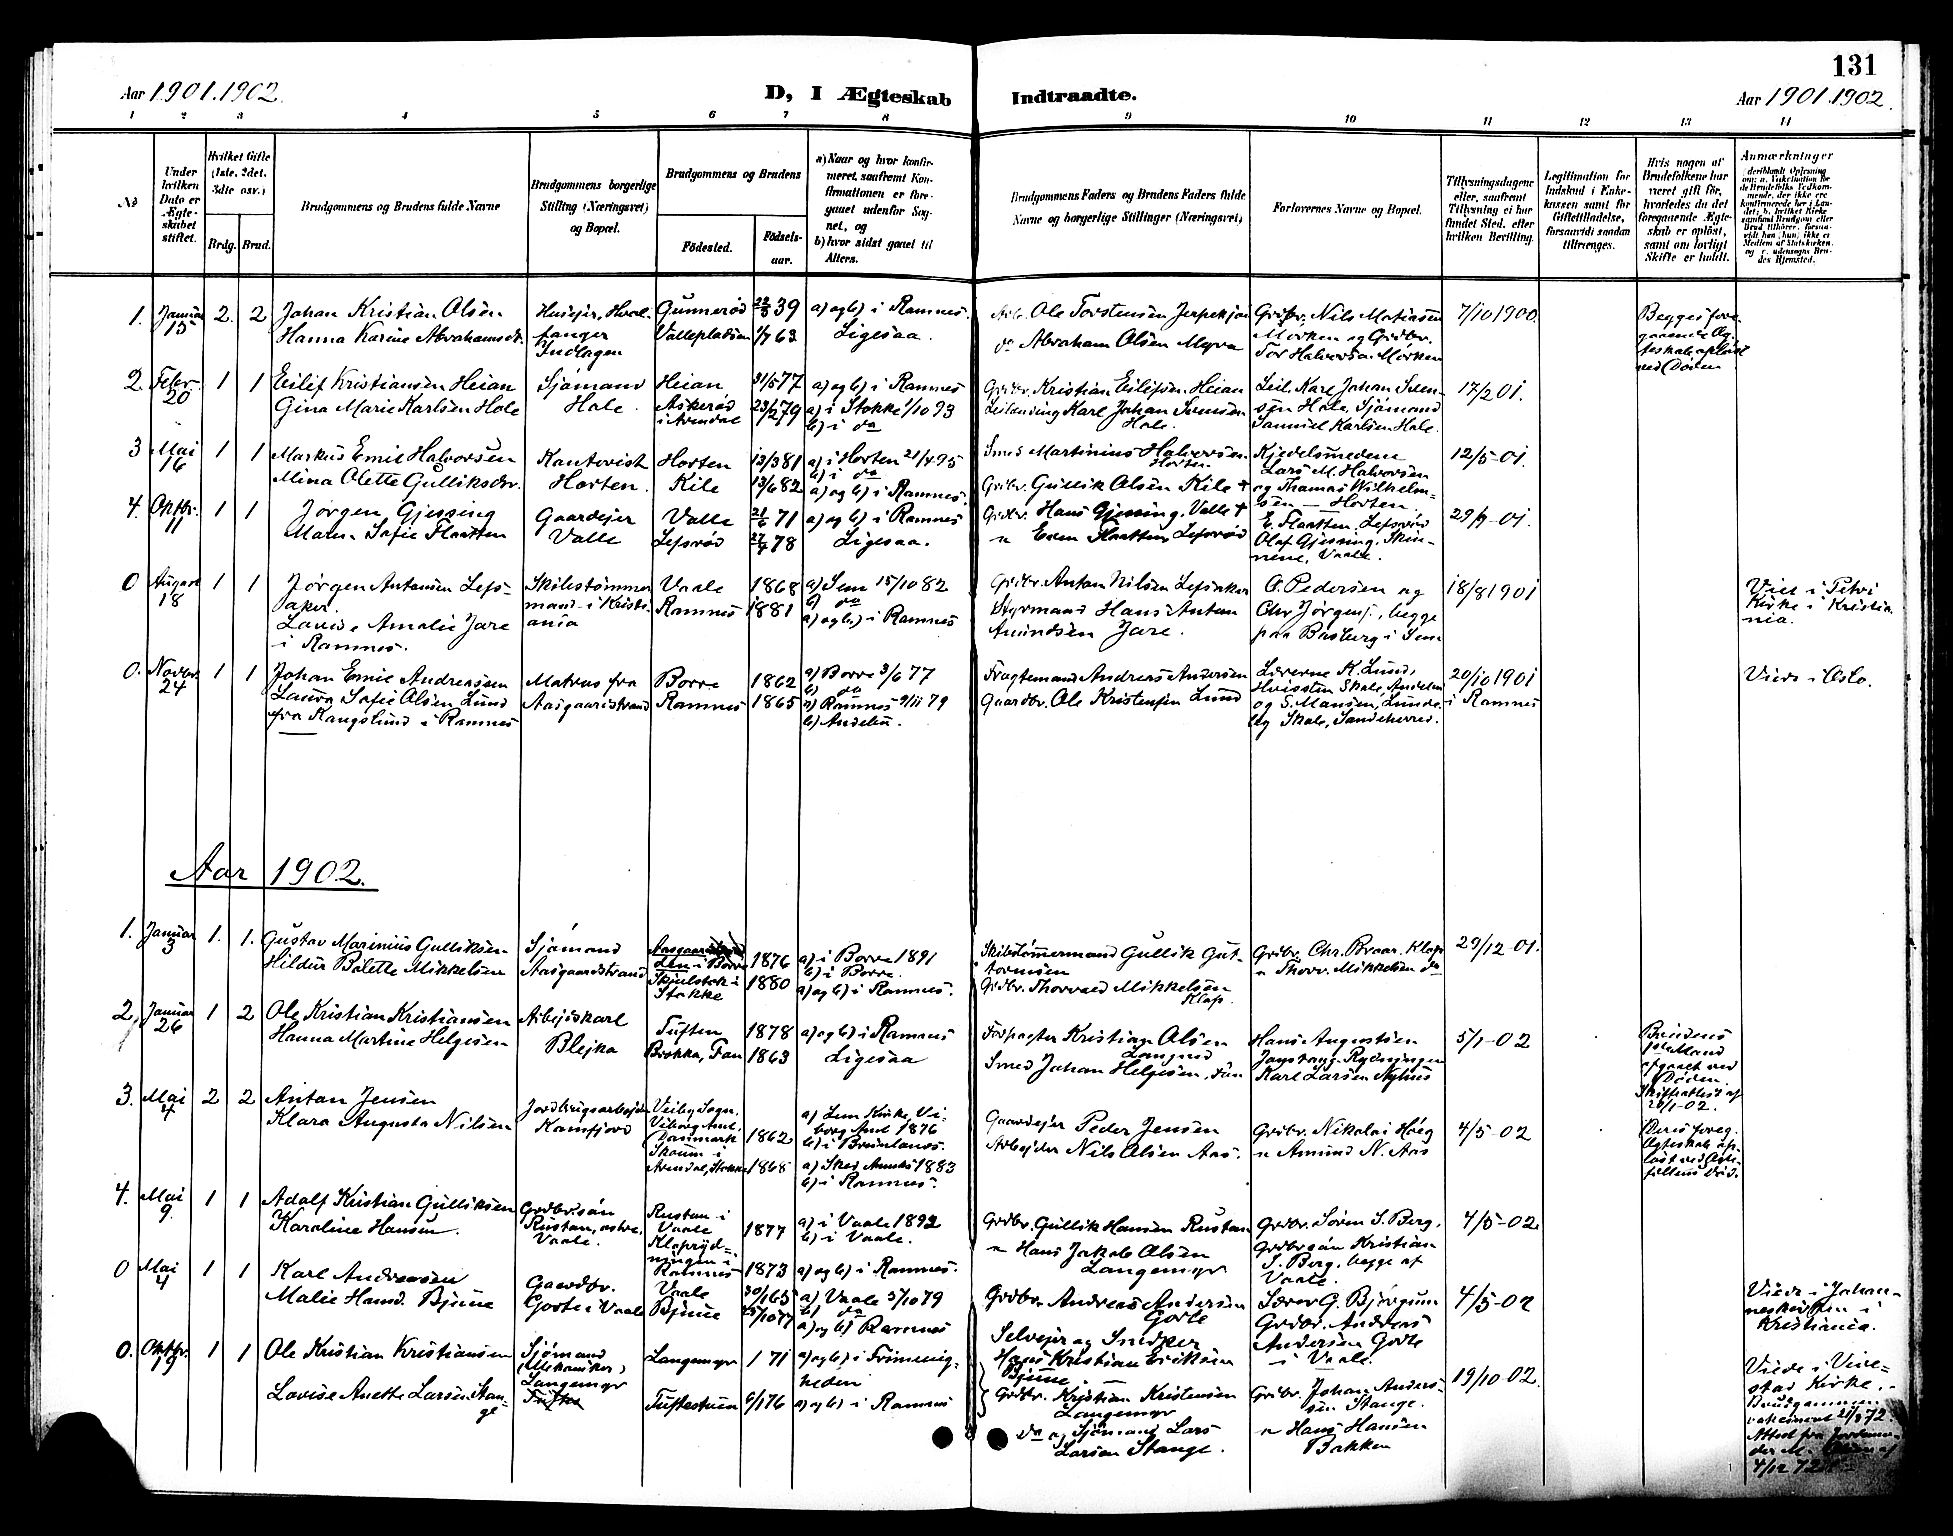 131
Aar 1901.1902.
D, I Ægteskab Indtraadte.
Aar 1901.1902.
1 2 3 4 5 6 7 8 9 10 11 12 13 14
No
Under hvilken Dato er Ægteskabet stiftet.
Hvilket Gifte (1ste, 2det, 3die osv.)
Brdg. Brud.
Brudgommens og Brudens fulde Navne
Brudgommens borgerlige Stilling (Næringsvei) og Bopæl.
Brudgommens og Brudens
Födested.
Födsels-aar.
a) Naar og hvor konfirmeret, saafremt Konfirmationen er foregaaet udenfor Sognet, og
b) hvor sidst gaaet til Alters.
Brudgommens Faders og Brudens Faders fulde Navne og borgerlige Stillinger (Næringsvei)
Forlovernes Navne og Bopæl.
Tillysningsdagene eller, saafremt Tillysning ei har fundet Sted, efter hvilken Bevilling.
Legitimation for Indskud i Enkekassen samt for Giftetilladelse, forsaavidt saadan tiltrænges.
Hvis nogen af Brudefolkene har været gift för, hvorledes da det foregaaende Ægteskab er oplöst, samt om lovligt Skifte er holdt.
Anmærkninger
1. Januar 15 2. 2 Johan Kristian Olsen
Hanna Karine Abrahamsdr.
Gunnerød 39
Vallepladsen 1/7 63
a) og b) i Ramnes.
Ligesaa.
Ole Torstensen
do Abraham Olsen Myra
Grdbr. Nils Matiassen
Mörken og Grdbr.
Tor Halvorsen Mörken
7/10 1900.
Begges foregaaende Ægteskab opløst ved Døden
2. Febr. 20 1 1 Eilif Kristiansen Heian
Gina Marie Karlsen Hole
Sjömand
Hole.
Heian 31/5 77
Askerød i Arendal 23/2 79
a) og b) i Ramnes
a) i Stokke 1/10 93
b) i do
Grdbr. Kristian Eilefsen Heian
Leilending Karl Johan Svensen
Hole.
Leil. Karl Johan Svensen
Hole, Sjömand
Samuel Karlsen Hole.
17/2 01.
3 Mai 16 1 1 Markus Emil Halvorsen
Mina Olette Gulliksdr.
Kantorist
Horten.
Horten 13/3 81
Kile 13/6 82
a) i Horten 21/4 95
b) i do
a) og b) i Ramnes.
Smed Martinius Halvorsen
Horten.
Grdbr. Gullik Olsen Kile +
Kjedelsmedene
Lars M. Halvorsen
og Thomas Wilhelmsen — Horten.
12/5-01.
4. Oktbr. 11 1 1 Jörgen Gjessing
Maren Sofie Flaatten
Gaardejer
Valle
Valle 21/6 71
Lefsröd 27/4 78
a) og b) i Ramnes
Ligesaa.
Grdbr. Hans Gjessing, Valle +
" Even Flaatten Lefsröd
E. Flaatten, Lefsröd
Olaf Gjessing, Skinnene, Vaale.
29/9-01.
0 August 18 1 1 Jørgen Antonsen Lefsaker.
Lovise Amalie Jare
i Ramnes.
Skibstömmermand i Kristiania
Vaale 1868
Ramnes 1881
a) Sem 15/10 82
b) do
a) og b) i Ramnes
Grdbr. Anton Nilsen Lefsaker
Styrmand Hans Anton
Amundsen Jare.
O. Pedersen og
Chr. Jörgens., begge
paa Basberg i Sem
18/8 1901
Viet i Petri
Kirke i Kristiania.
0. Novbr. 24 1 1 Johan Emil Andreassen
Laura Sofie Olsen Lund
fra Kongslund i Ramnes
Matros fra
Aasgaardstrand
Borre 1862
Ramnes 1865
a) Borre 3/6 77
b) do
a) Ramnes 9/11 79
b) Andebu.
Fragtemand Andreas Andersen
Gaardbr. Ole Kristensen Lund
Lærerne K. Lund,
Hvitstein Skole, Andebu
og S. Mansen, Lundeby Skole, Sandeherred.
20/10 1901
i Ramnes
Viede i Oslo.
Aar 1902.
1. Januar 3 1. 1. Gustav Marinius Gulliksen
Hildur Bolette Mikkelsen
Sjömand
Aasgaardstrand
i Borre 1876
Skjelstok i Stokke 1880
a) i Borre 1891
b) i Borre.
a) og b) i Ramnes.
Skibstömmermand Gullik Guttormsen
Grdbr. Thorvald Mikkelsen
Klop.
Grdbr. Chr. Braar, Klop
" Thorv. Mikkelsen do
29/12-01.
2 Januar 26 1 2 Ole Kristian Kristiansen
Hanna Martine Helgesen
Arbejdskarl
Blejka
Tuften 1878
Brokka, Fon 1863
a) og b) i Ramnes
Ligesaa
Forpagter Kristian Olsen
Smed Johan Helgesen, Fon
Hans Augustsen
Karl Larsen Nyhus
5/1-02
Brudens
1ste Mand
afgaaet ved
Døden.
Skifteattest af
20/1-02.
3. Mai 4 2 2 Anton Jensen
Klara Augusta Nilsen
Jordbrugsarbejder
Kamfjord
Veiby Sogn,
Viborg Amt,
Danmark 1862
Skaum i
Arendal, Stokke 1868
a) Lem Kirke, Viborg Amt 1876
b) i Brunlanes.
a) Skee Annex 1883
b) i Ramnes.
Gaardejer Peder Jensen
Arbejder Nils Olsen Aas.
Grdbr. Nikolai Høeg
" Amund N. Aas
4/5-02
Deres foreg.
Ægteskab opløst ved Ægtefellens Död.
4. Mai 9. 1 1 Adolf Kristian Gulliksen
Karoline Hansen.
Grdbrsön
Rustan, østre,
Vaale.
Rustan i
Vaale 1877
Kloprydningen i
Ramnes 1873
a) i Vaale 1892
b) i Vaale.
a) og b) i Ramnes.
Grdbr. Gullik Hansen Rustan
" Hans Jakob Olsen
Langemyr
Grdbr. Sören S. Berg,
Grdbrsön Kristian
S. Berg, begge af
Vaale.
4/5-02.
0 Mai 4 1 1 Karl Andreassen
Malie Hansd. Bjune
Gaardbr.
Gorte i Vaale
Vaale 30/1 65
Bjune 25/10 77
a) Vaale 5/10 79
b) do
a) og b) Ramnes
Grdbr. Andreas Andersen
Gorte
Selvejer og Snedker
Hans Kristian Eriksen
Bjune.
Lærer G. Björgum
Grdbr. Andreas
Andersen Gorte
i Vaale.
4/5-02
Viede i Johanneskirken i
Kristiania.
0. Oktbr. 19 1 1 Ole Kristian Kristiansen
Lovise Anette Larsen Stange
Sjömand
(Mekaniker)
Langemyr
Langemyr 1 71
Tuftestuen 6/1 76
a) og b) i Frimenigheden
a) og b) i Ramnes
Grdbr. Kristian Kristensen
Langemyr
do og Sjömand Lars
Larsen Stange.
Grdbr. Johan Anderssen Stange.
" Hans Hansen
Bakken
19/10-02.
Viede i Vivestad Kirke.
Brudgommen
vakcineret 21/9 72.
Attest fra Jordemoder
4/12 72